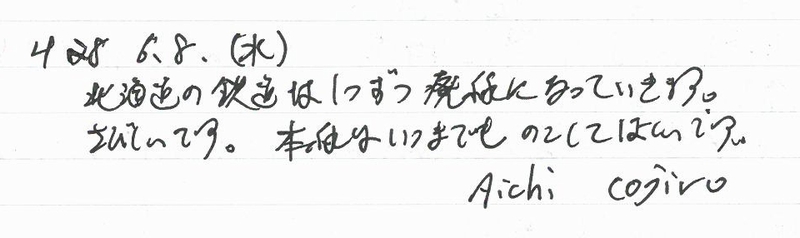 428 6.8.(水)
北海道の鉄道は1つずつ廃線になっていきます。
さびしいです。本線はいつまでものこしてほしいです。
Aichi Cojiro